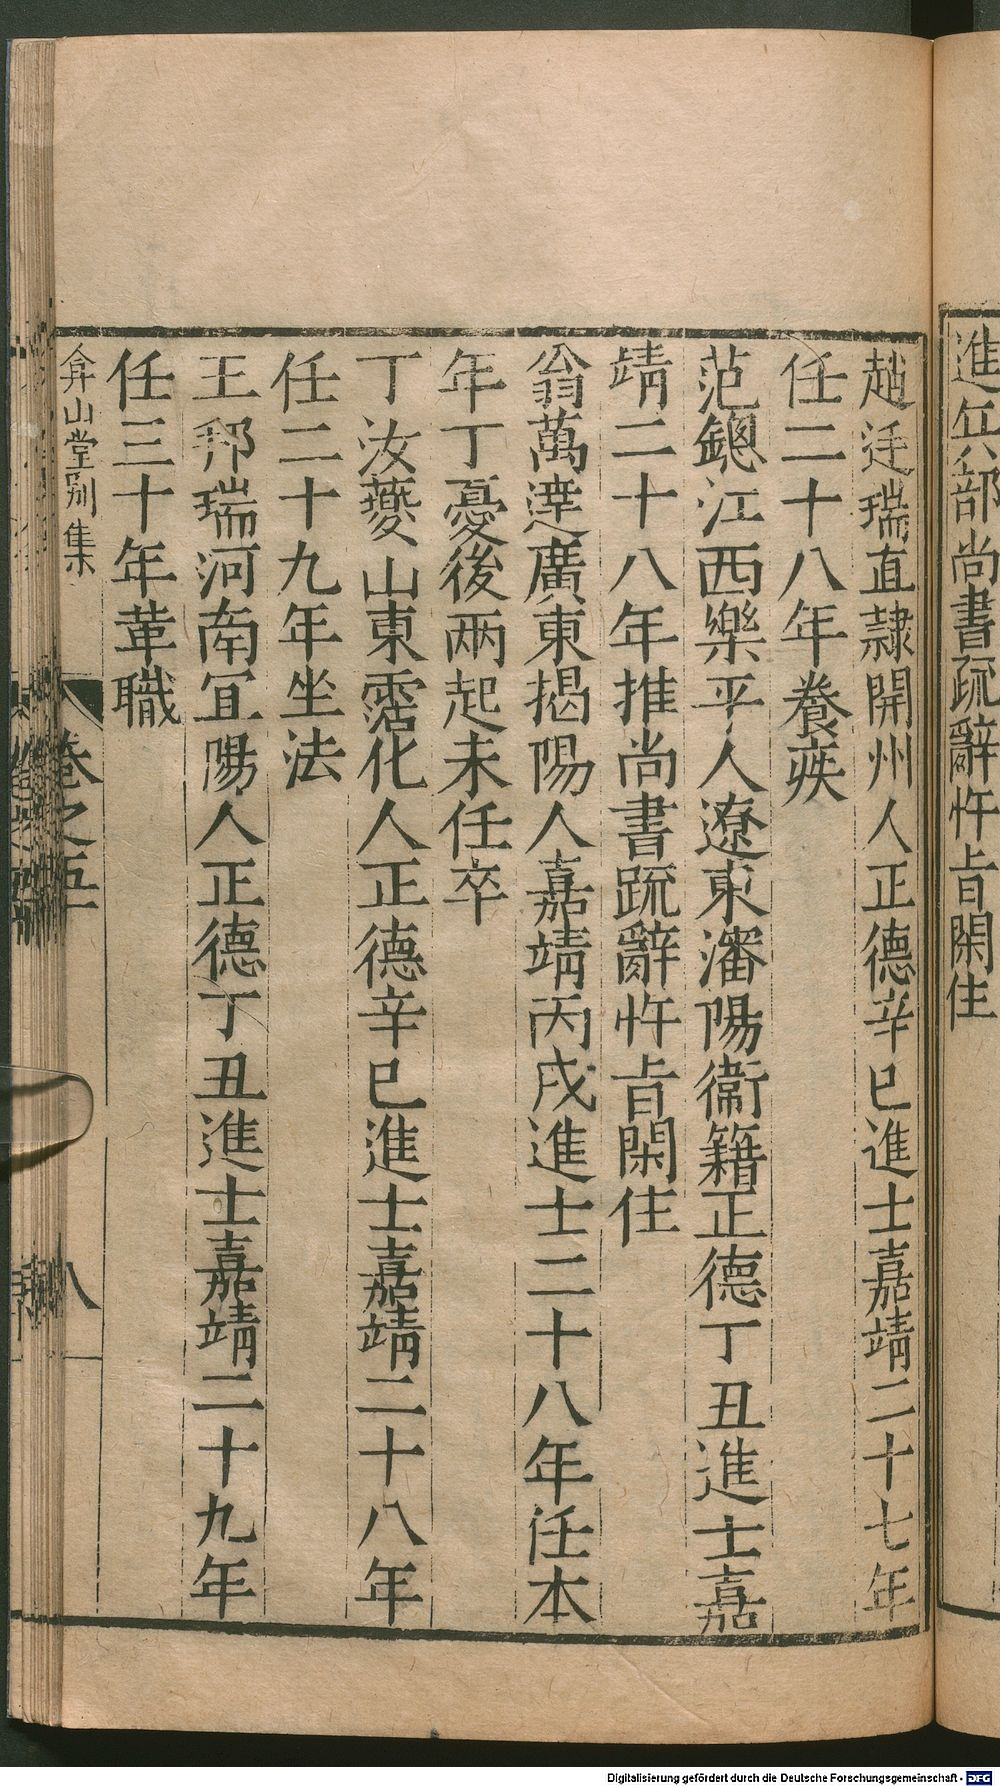 進兵部尚書疏辭忤旨閑住
趙廷瑞直隷開州人正德辛巳進士嘉靖二十七年
任二十八年養疾
范鏓江西樂平人遼東瀋陽衞籍正德丁丑進士嘉
靖二十八年推尚書疏辭忤旨閑住
翁萬達廣東揭陽人嘉靖丙戌進士二十八年任本
年丁憂後兩起未任卒
丁汝夔山東霑化人正德辛巳進士嘉靖二十八年
任二十九年坐法
王邦瑞河南宜陽人正德丁丑進士嘉靖二十九年
任三十年革職
弇山堂別集
卷之五
八
Digitalisierung gefördert durch die Deutsche Forschungsgemeinschaft - DFG